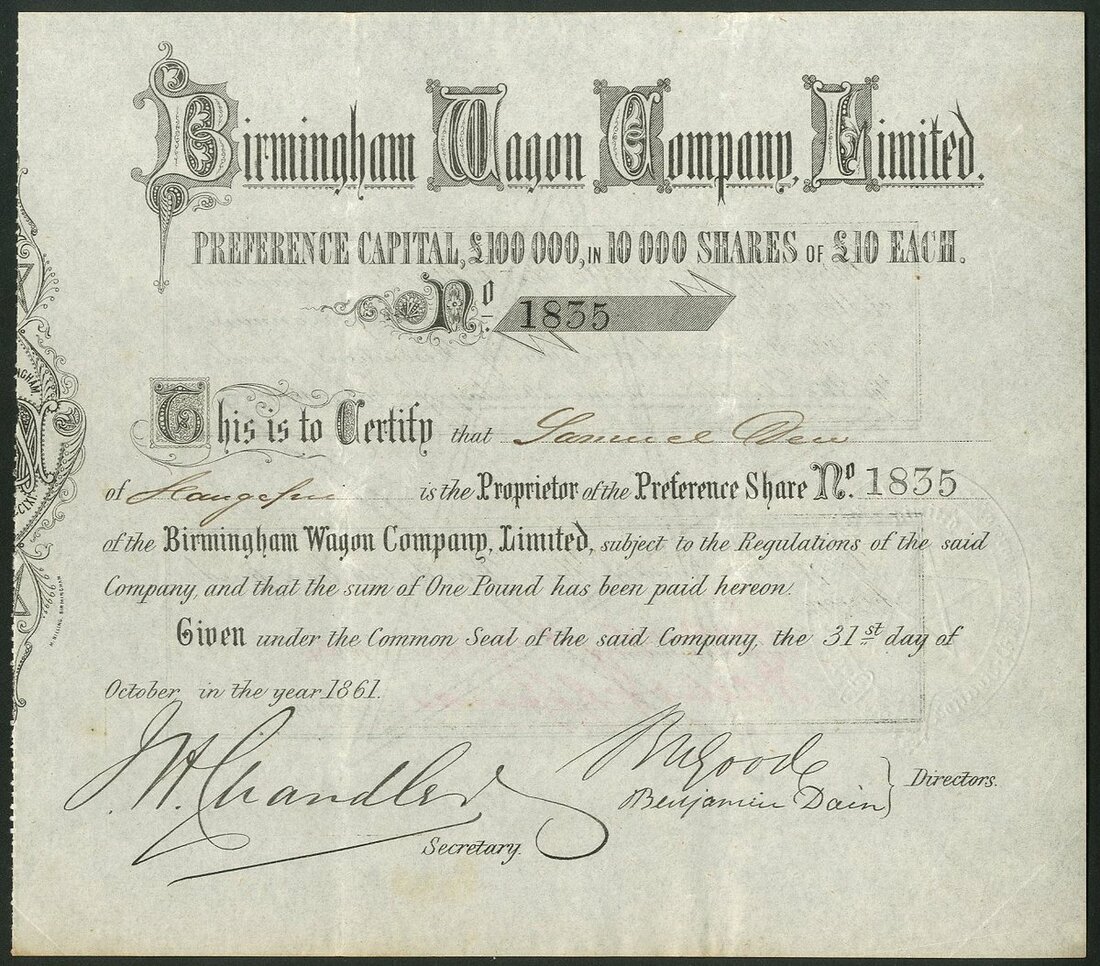 Birmingham Wagon Company, Limited.
PREFERENCE CAPITAL, £100 000, IN 10 000 SHARES OF £10 EACH.
No. 1835
This is to Certify that Samuel Dew
of is the Proprietor of the Preference Share No. 1835
of the Birmingham Wagon Company, Limited, subject to the Regulations of the said
Company, and that the sum of One Pound has been paid hereon.
Given under the Common Seal of the said Company, the 31st day of
October, in the year 1861.
J. H. Chandler
Secretary.
Benjamin Dain
Directors.
M. BILLING, BIRMINGHAM